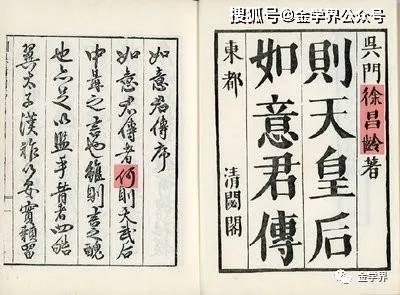 搜狐号@金学界公众号
吳門徐昌齡著
則天皇后
如意君傳
東都 清閟閣
如意君傳序
如意君傳者何則天武后
中冓之言也雖則言之醜
也亦足以監乎昔者四皓
翼太子漢祚以安實賴留
金学界